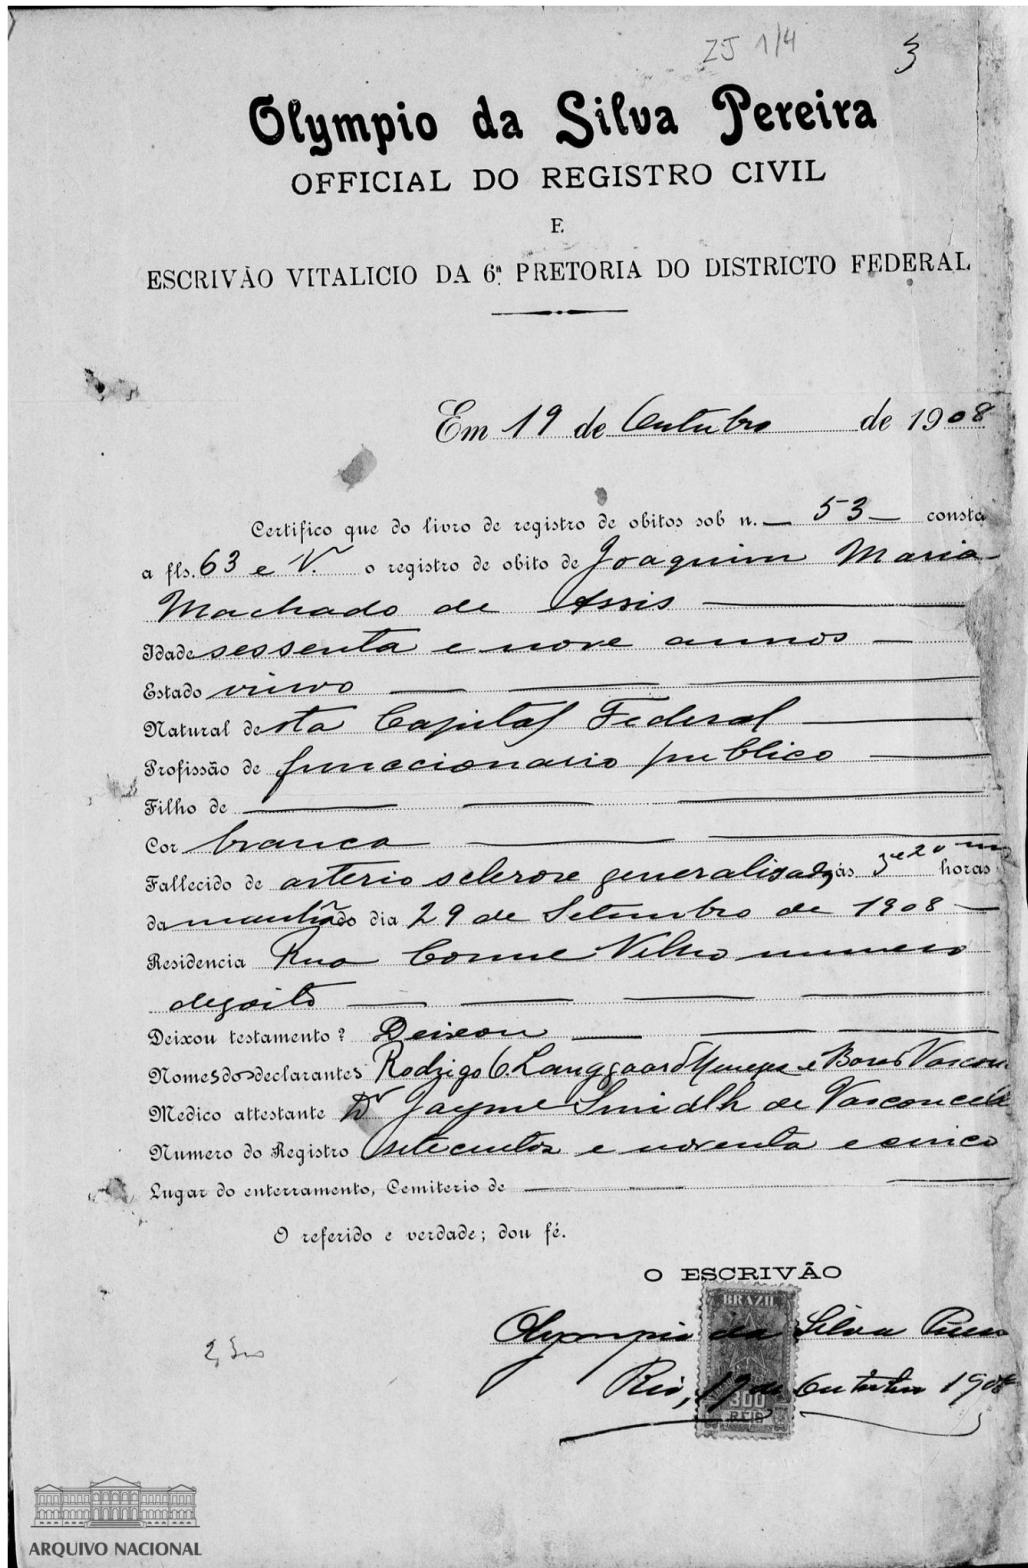 ZJ 1/4
3
Olympio da Silva Pereira
OFFICIAL DO REGISTRO CIVIL
E
ESCRIVÃO VITALICIO DA 6ª PRETORIA DO DISTRICTO FEDERAL
Em 19 de Outubro de 1908
Certifico que do livro de registro de obitos sob n. 53 consta
a fls. 63 e V. o registro de obito de Joaquim Maria
Machado de Assis
Idade sessenta e nove annos
Estado viuvo
Natural desta Capital Federal
Profissão de funccionario publico
Filho de
Cor branca
Fallecido de arterio sclerose generalisada, ás 3 e 20 m horas
da manhã do dia 29 de Setembro de 1908
Residencia Rua Cosme Velho numero
dezoito
Deixou testamento? Deixou
Nomes dos declarantes Rodrigo O. Langgaard Menezes e
Medico attestante Dr Jayme Smidth de Vasconcellos
Numero do Registro setecentos e noventa e cinco
Lugar do enterramento, Cemiterio de
O referido e verdade; dou fé.
O ESCRIVÃO
BRAZIL
Olympio da Silva Pereira
Rio, 19 de Outubro 1908
300
REIS
ARQUIVO NACIONAL